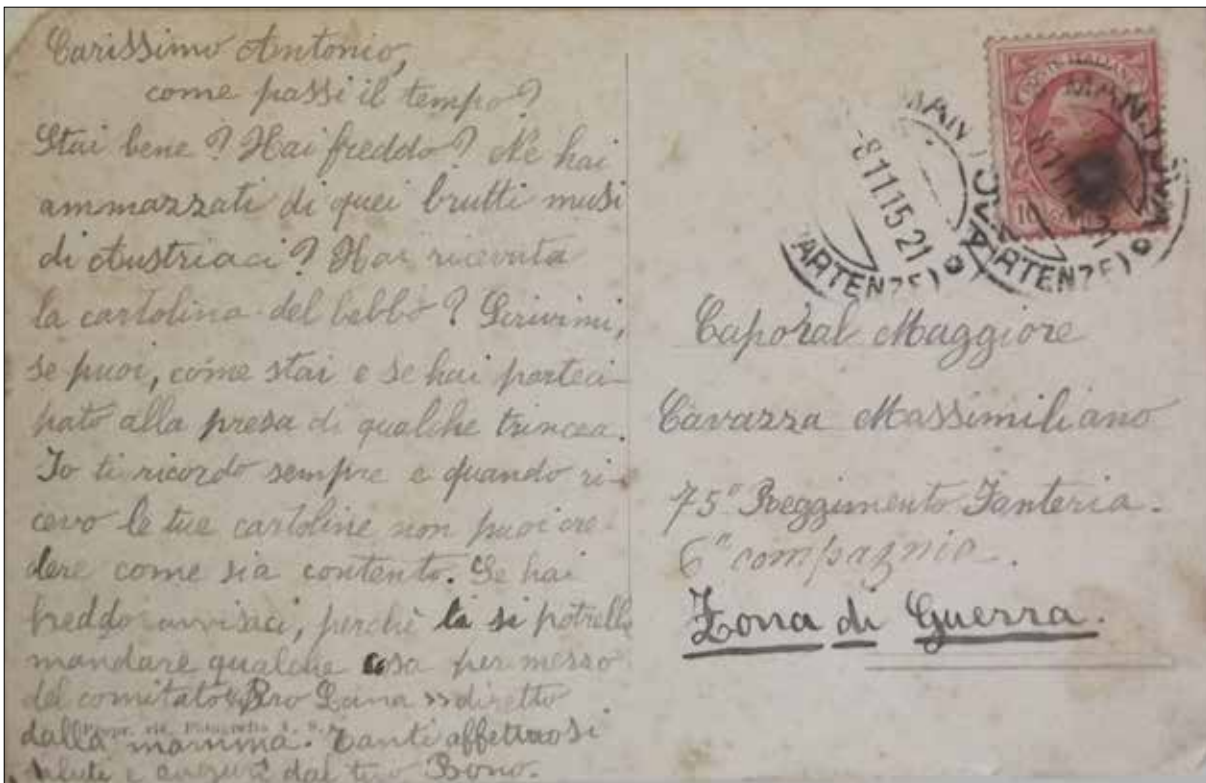 Carissimo Antonio,
come passi il tempo?
Stai bene? Hai freddo? Ne hai
ammazzati di quei brutti musi
di Austriaci? Hai ricevuta
la cartolina del babbo? Scrivimi,
se puoi, come stai e se hai parteci-
pato alla presa di qualche trincea.
Io ti ricordo sempre e quando ri-
cevo le tue cartoline non puoi cre-
dere come sia contento. Se hai
freddo avvisaci, perchè ti si potrebbe
mandare qualche cosa per mezzo
del comitato «Pro Lana» diretto
dalla mamma. Tanti affettuosi
saluti e auguri dal tuo Bono.
POSTE ITALIANE
MANTOVA
-8 11 15 21
(PARTENZE)
Caporal Maggiore
Cavazza Massimiliano
75° Reggimento Fanteria.
6ª compagnia.
Zona di Guerra.